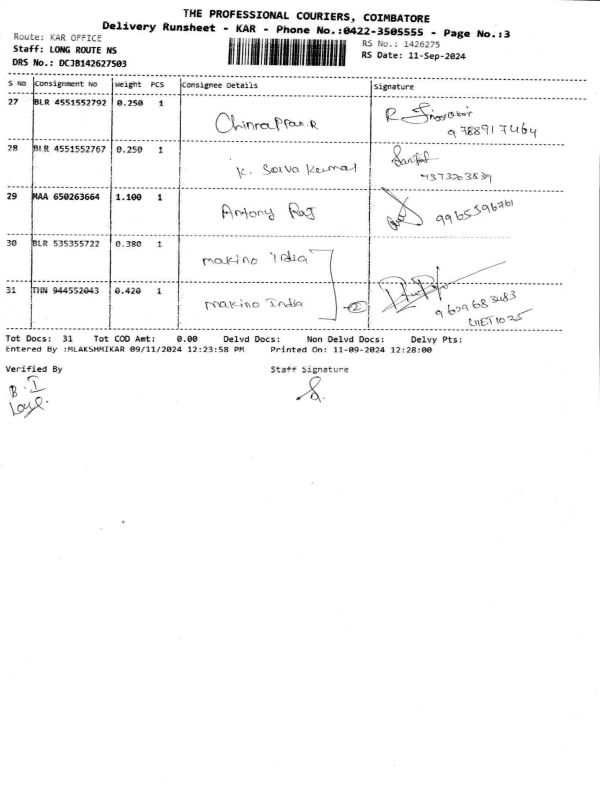 THE PROFESSIONAL COURIERS, COIMBATORE
Delivery Runsheet - KAR - Phone No.:0422-3505555 - Page No.:3
Route: KAR OFFICE RS No.: 1426275
Staff: LONG ROUTE NS RS Date: 11-Sep-2024
DRS No.: DCJB142627503
S No Consignment No Weight PCS Consignee Details Signature
27 BLR 4551552792 0.250 1
9788917464
28 BLR 4551552767 0.250 1 K. Kumar
7373263839
29 MAA 650263664 1.100 1 Antony Raj
9965596761
30 BLR 535355722 0.380 1 makino India
31 THN 944552043 0.420 1 makino India 2
9629683483
Tot Docs: 31 Tot COD Amt: 0.00 Delvd Docs: Non Delvd Docs: Delvy Pts:
Entered By :MLAKSHMIKAR 09/11/2024 12:23:58 PM Printed On: 11-09-2024 12:28:00
Verified By Staff Signature